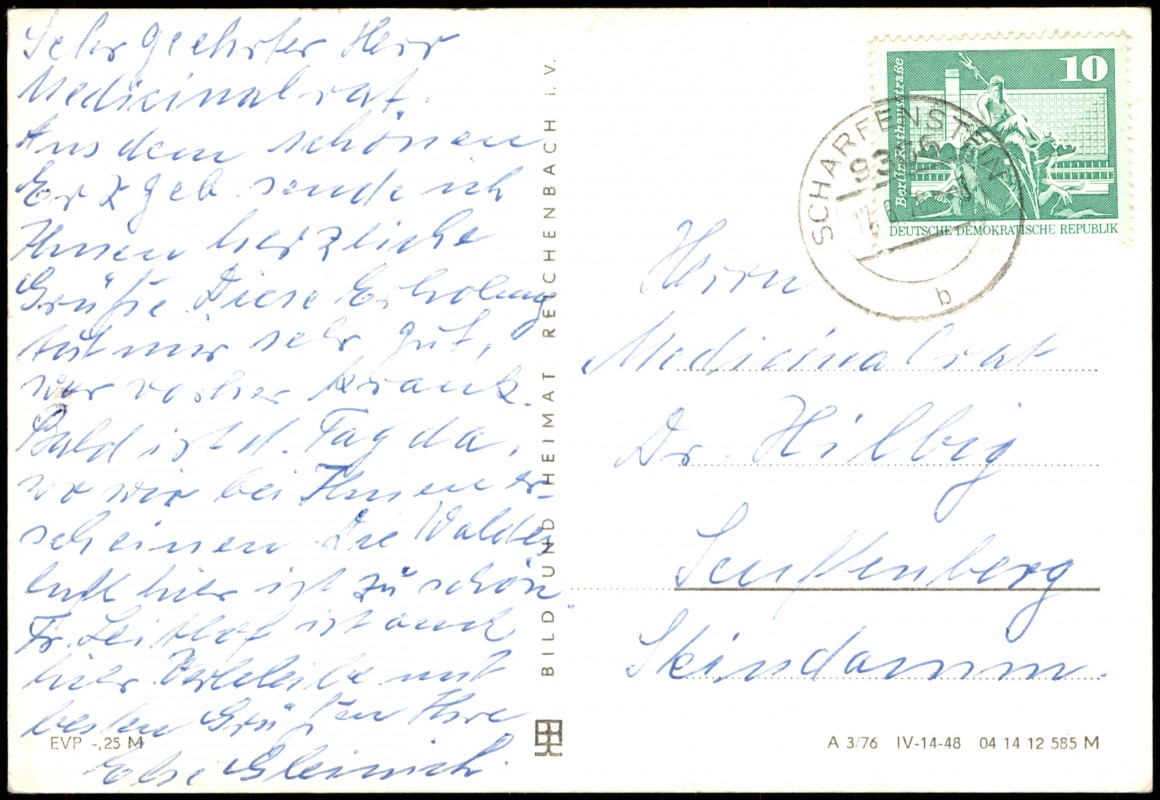 Sehr geehrter Herr
Medicinalrat.
Aus dem schönen
Erzgeb. sende ich
Ihnen herzliche
Grüße. Diese Erholung
tut mir sehr gut,
war vorher krank.
Bald ist d. Tag da,
wo wir bei Ihnen er-
scheinen. Die Waldes-
luft hier ist zu schön.
Fr. Leithof ist auch
hier. Verbleibe mit
besten Grüßen Ihre
Else Gleinich.
EVP -,25 M
BILD UND HEIMAT REICHENBACH I. V.
10
Berlin, Rathausstraße
DEUTSCHE DEMOKRATISCHE REPUBLIK
SCHARFENSTEIN
b
Herrn
Medicinalrat
Dr. Hilbig
Senftenberg
Steindamm.
A 3/76 IV-14-48 04 14 12 585 M